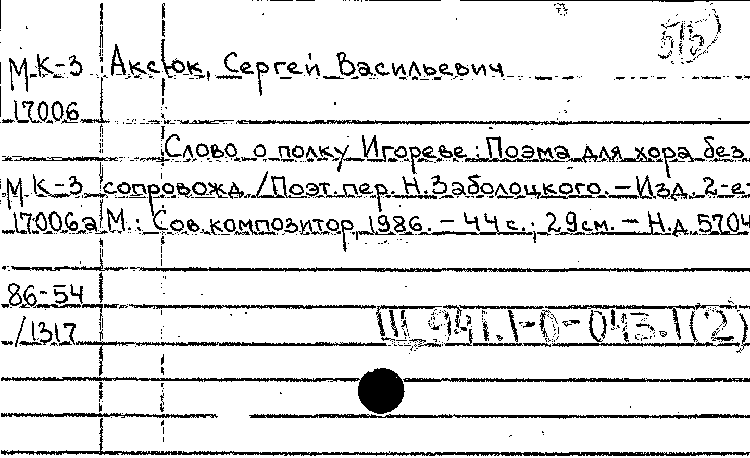 5/5
МК-3 Аксюк, Сергей Васильевич
17006
Слово о полку Игореве: Поэма для хора без
МК-3 сопровожд. /Поэт. пер. Н. Заболоцкого. – Изд. 2-е-
17006а М.: Сов. композитор, 1986. – 44 с.; 29 см. – Н.д. 5704
86-54
/1317
Щ 941.1-0-043.1(2)